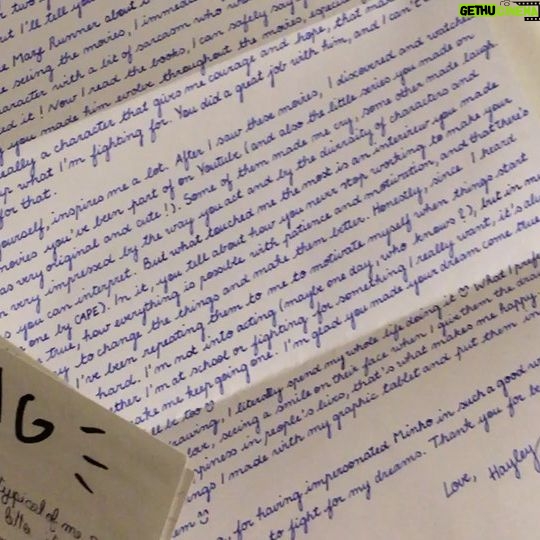 GETHU CINEMA
two
ut I'll tell you
e Maze Runner about
e seeing the movies, I immedia
aracter with a bit of sarcasm who
ed it! Now I read the books, I can safely say
you made him evolve throughout the movies, espec
really a character that gives me courage and hope, that ma
up what I'm fighting for. You did a great job with him, and I can't
for that.
yourself, inspires me a lot. After I saw these movies, I discovered and watche
movies you've been part of on Youtube (and also the little series you made on
as very original and cute!). Some of them made me cry, some other made laugh
n very impressed by the way you act and by the diversity of characters and
s you can interpret. But what touched me the most is an interview you made
one by CAPE). In it, you tell about how you never stop working to make your
true, how everything is possible with patience and motivation, and that there's
y to change the things and make them better. Honestly, since I heard
I've been repeating them to me to motivate myself when things start
hard. I'm not into acting (maybe one day, who knows?), but in my
ther I'm at school or fighting for something I really want, it's alw
ake me keep going one. I'm glad you made your dream come true
ll be too
rawing, I literally spend my whole life doing it What I pref
love, seeing a smile on their face when I give them the dra
ppiness in people's lives, that's what makes me happy
ings I made with my graphic tablet and put them in
em
, for having impersonated Minho in such a good w
to fight for my dreams. Thank you for be
Love, Hayley
NG
typical of me